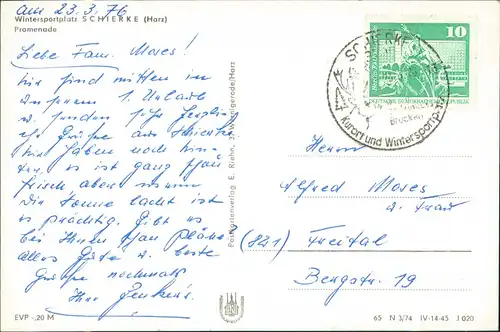 am 23.3.76
Wintersportplatz SCHIERKE (Harz)
Promenade
Liebe Fam. Moses!
Wir sind mitten in
unserem 1. Urlaub
u. senden sehr herzlich
Grüße aus Schierke
Wir haben noch
es ist ganz schön
frisch aber
Die Sonne lacht ist
es prächtig. Gibt es
bei Ihnen schon Pläne
Alles Gute u. beste
Grüße nochmals
Ihre
Postkartenverlag E. Riehn, Wernigerode/Harz
SCHIERKE
Kurort und Wintersportplatz
Brocken
10
DEUTSCHE DEMOKRATISCHE REPUBLIK
Herrn
Alfred Moses
u. Frau
(821) Freital
Bergstr. 19
EVP -,20 M
65 N 3/74 IV-14-45 J 020